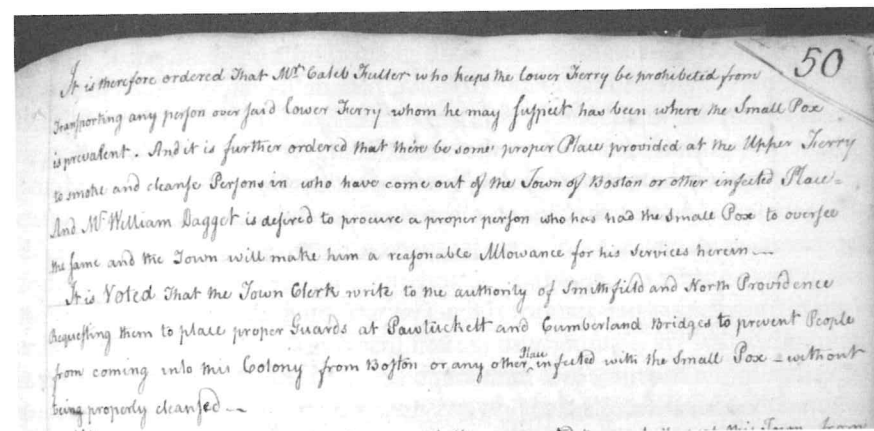 50
It is therefore ordered That Mr. Caleb Fuller who keeps the lower Ferry be prohibeted from
Transporting any person over said lower Ferry whom he may suspect has been where the Small Pox
is prevalent. And it is further ordered that there be some proper Place provided at the Upper Ferry
to smoke and cleanse Persons in who have come out of the Town of Boston or other infected Place-
And Mr. William Dagget is desired to procure a proper person who has had the Small Pox to oversee
the same and the Town will make him a reasonable Allowance for his Services herein —
It is Voted That the Town Clerk write to the authority of Smithfield and North Providence
Requesting them to place proper Guards at Pawtuckett and Cumberland Bridges to prevent People
from coming into this Colony from Boston or any other Place infected with the Small Pox - without
being properly cleansed —
this Town from